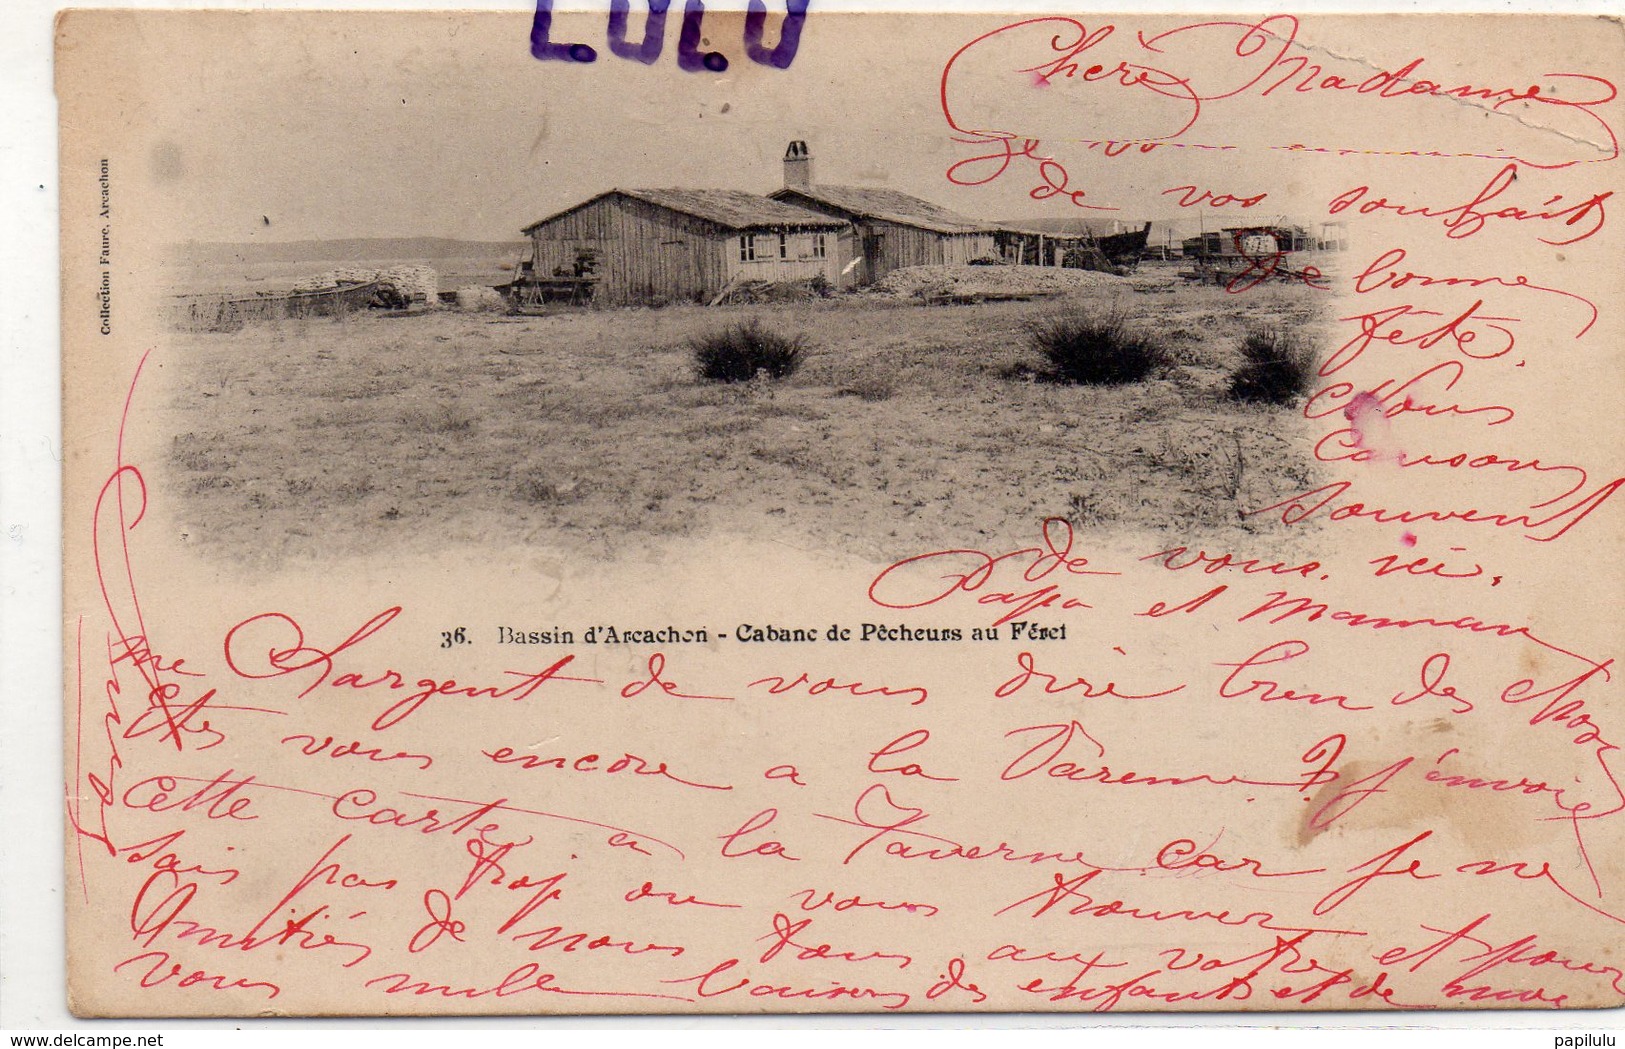 LULU
Collection Faure, Arcachon
Chère Madame
Je vo
de vos souhaits
de bonne
fête.
Nous
Causons
souvent
de vous ici.
Papa et Maman
36. Bassin d'Arcachon - Cabane de Pêcheurs au Féret
me Chargent de vous dire bien des choses
Etes vous encore a la Varenne? j'envoie
cette carte a la Taverne car je ne
sais pas trop ou vous trouver
Amitiés de nous tous aux votres et pour
vous mille baisers des enfants et de moi
www.delcampe.net
papilulu